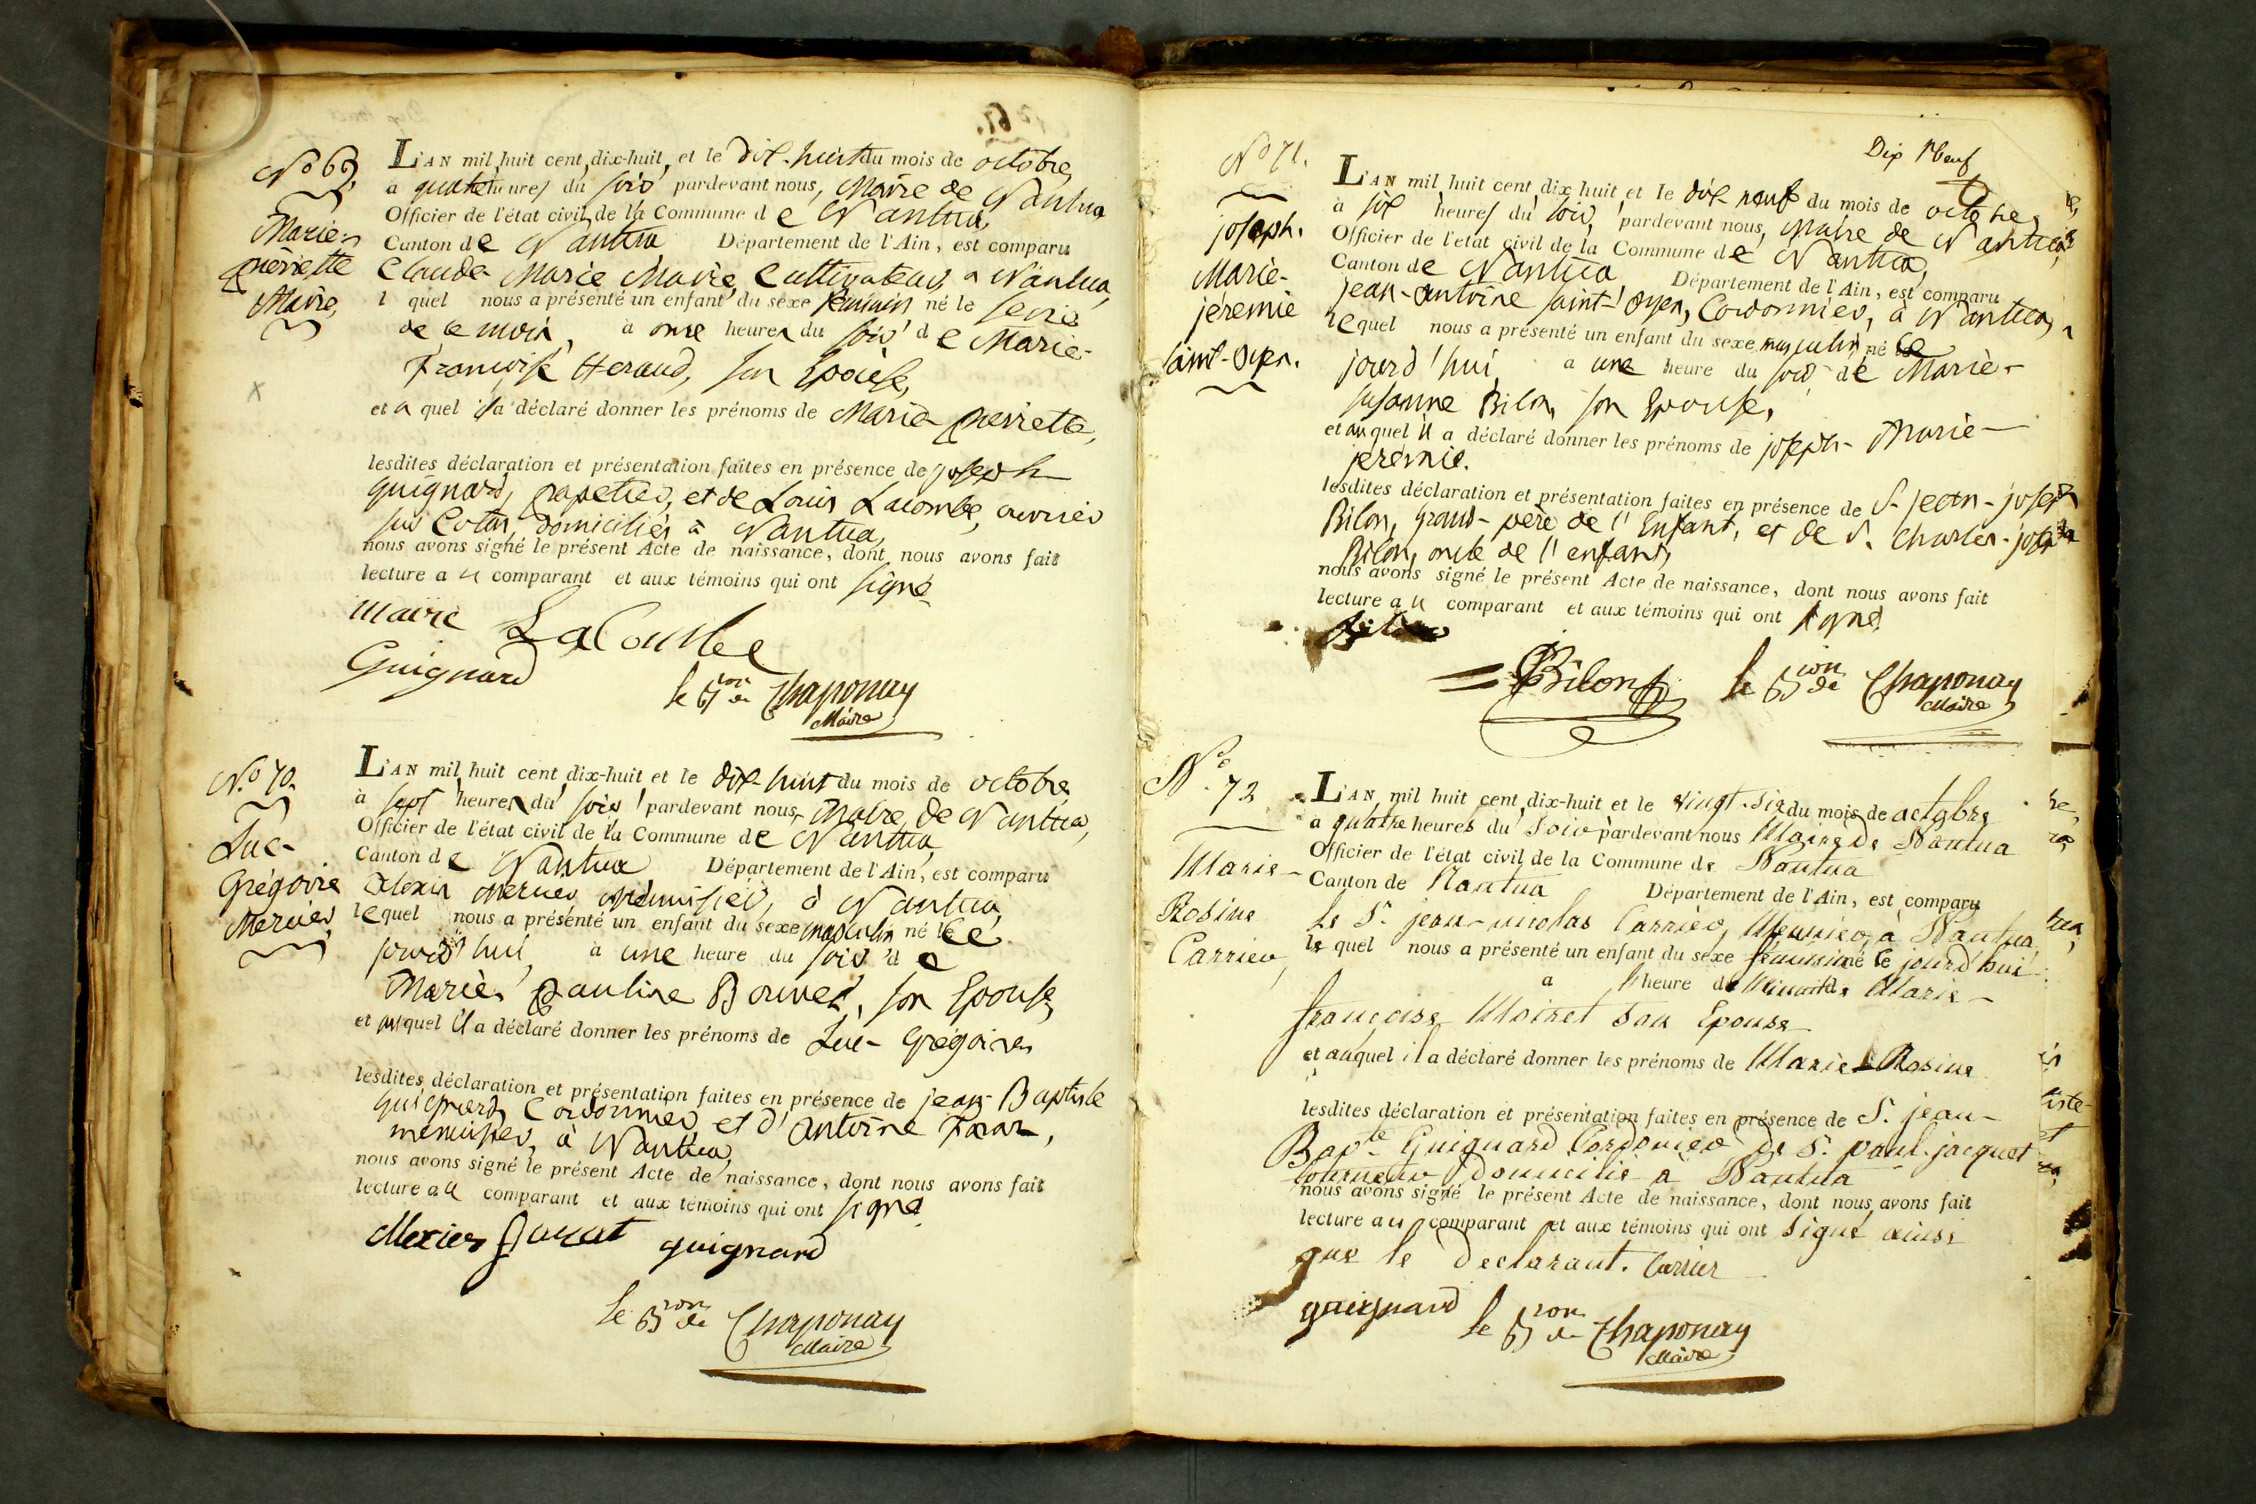 N° 69.
Marie-
pierrette
Marie,
L'AN mil huit cent dix-huit, et le dix-huit du mois de octobre,
à quatre heures du soir pardevant nous, Maire de Nantua
Officier de l'état civil de la Commune de Nantua,
Canton de Nantua Département de l'Ain, est comparu
Claude Marie Marie, Cultivateur à Nantua,
l quel nous a présenté un enfant du sexe féminin né le seize
de ce mois, à onze heures du soir de Marie-
Françoise Heraud, son Epouse,
et a quel il a déclaré donner les prénoms de Marie pierrette,
lesdites déclaration et présentation faites en présence de joseph
guignard, papetier, et de Louis Lacombe, ouvrier
sur Coton, domiciliés à Nantua,
nous avons signé le présent Acte de naissance, dont nous avons fait
lecture au comparant et aux témoins qui ont signé
Maire LaCombe
Guignard
le Bron de Chaponay
Maire
N.° 70.
Luc-
Grégoire
Mercier,
L'AN mil huit cent dix-huit et le dix-huit du mois de octobre,
à sept heures du soir pardevant nous, Maire de Nantua,
Officier de l'état civil de la Commune de Nantua,
Canton de Nantua Département de l'Ain, est comparu
Alexis Mercier, Menuisier, à Nantua,
lequel nous a présenté un enfant du sexe masculin né le ce
jourd'hui, à une heure du soir de
Marie pauline Bouvet, son Epouse,
et auquel il a déclaré donner les prénoms de Luc-Grégoire,
lesdites déclaration et présentation faites en présence de jean-Baptiste
guignard, Cordonnier et d'antoine
menuisier, à Nantua,
nous avons signé le présent Acte de naissance, dont nous avons fait
lecture au comparant et aux témoins qui ont signé
Mercier guignard
le Bron de Chaponay
Maire
Dix Neuf
N° 71.
joseph-
Marie-
jérémie
saint-oyen.
L'AN mil huit cent dix huit et le dix-neuf du mois de octobre,
à six heures du soir, pardevant nous, Maire de Nantua,
Officier de l'etat civil de la Commune de Nantua,
Canton de Nantua Département de l'Ain, est comparu
jean-antoine saint-oyen, Cordonnier, à Nantua,
lequel nous a présenté un enfant du sexe masculin né ce
jourd'hui à une heure du soir de Marie-
susanne Bilon, son Epouse,
et auquel il a déclaré donner les prénoms de joseph-Marie-
jérémie.
lesdites déclaration et présentation faites en présence de S. jean-joseph
Bilon, grand-père de l'Enfant, et de S. charles-joseph
Bilon, oncle de l'enfant,
nous avons signé le présent Acte de naissance, dont nous avons fait
lecture au comparant et aux témoins qui ont signé.
Bilon
le Bron de Chaponay
Maire
N°. 72
Marie-
Rosine
Carrier,
L'AN mil huit cent dix-huit et le vingt-six du mois de octobre
à quatre heures du Soir pardevant nous Maire de Nantua
Officier de l'état civil de la Commune de Nantua
Canton de Nantua Département de l'Ain, est comparu
le S. jean-nicolas Carrier, Meunier, à Nantua
lequel nous a présenté un enfant du sexe féminin né le jourd'hui
a heure de Marie-
françoise Moiret son Epouse
et auquel il a déclaré donner les prénoms de Marie Rosine
lesdites déclaration et présentation faites en présence de S. jean-
Bapte Guignard Cordonier de S. paul-jacquet
tourneur domicilié à Nantua
nous avons signé le présent Acte de naissance, dont nous avons fait
lecture au comparant et aux témoins qui ont signé ainsi
que le declarant. Carrier
guignard le Bron de Chaponay
Maire